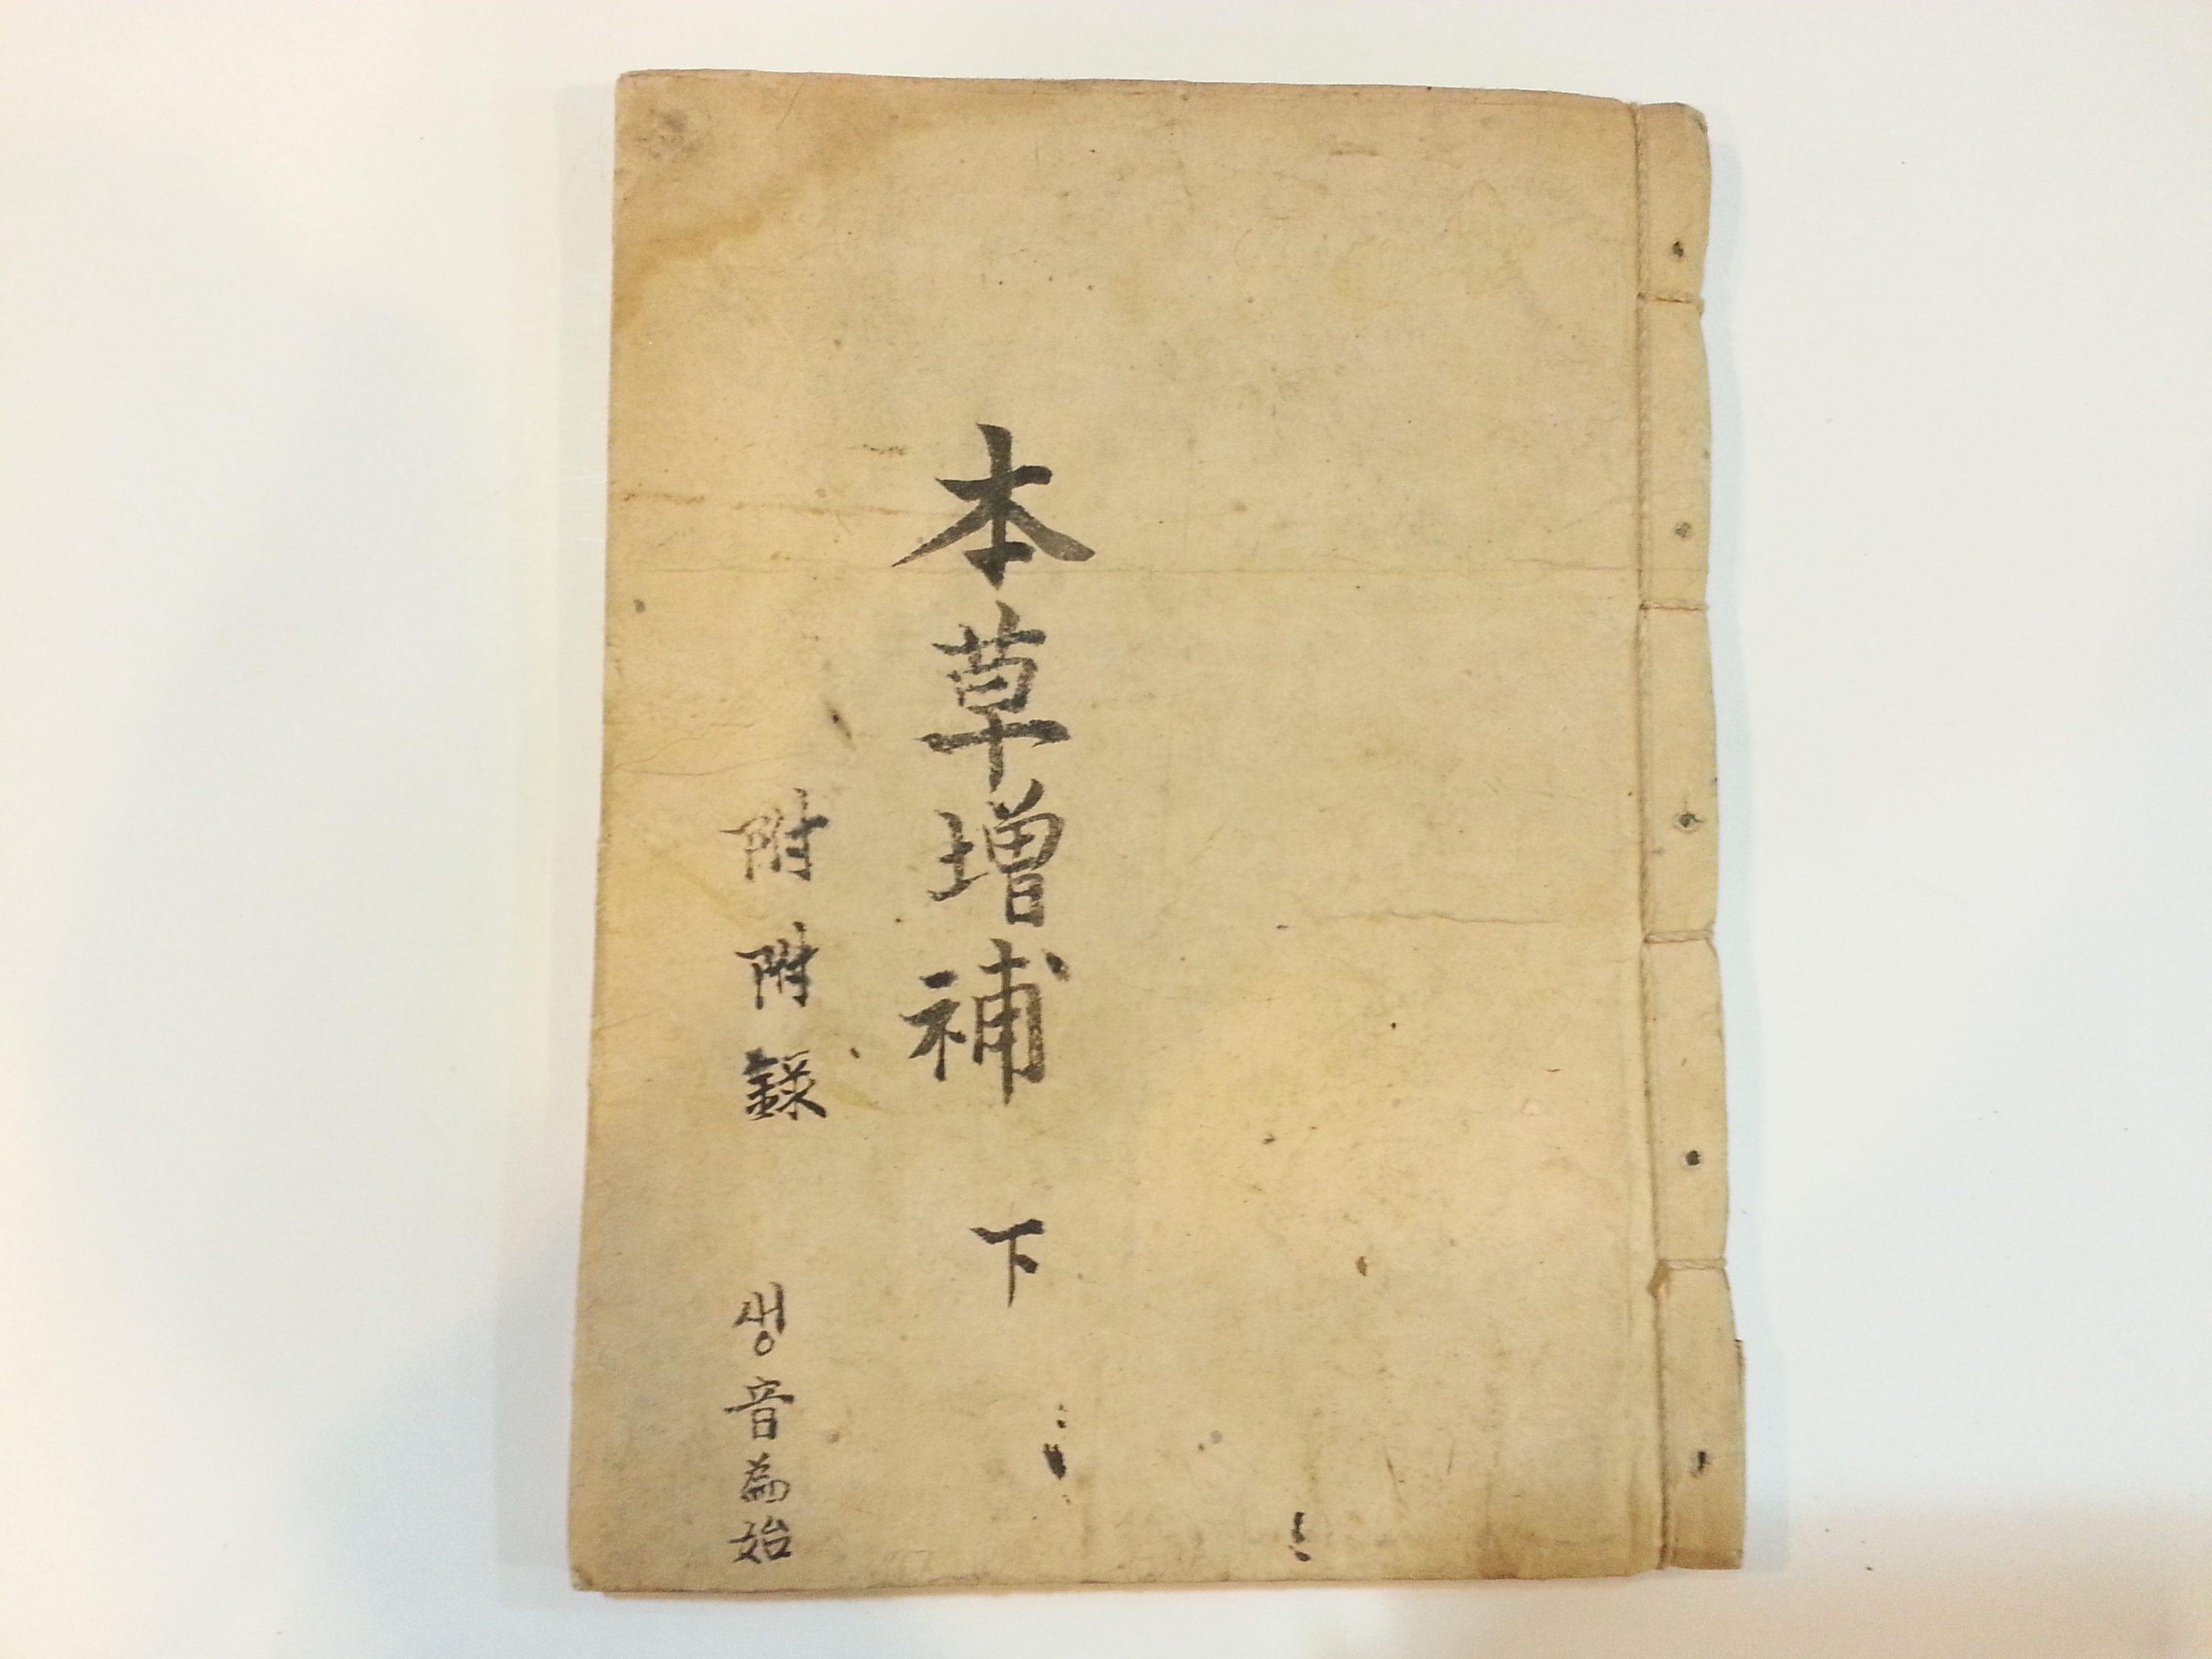 本草增補 下
附附錄 생音爲始